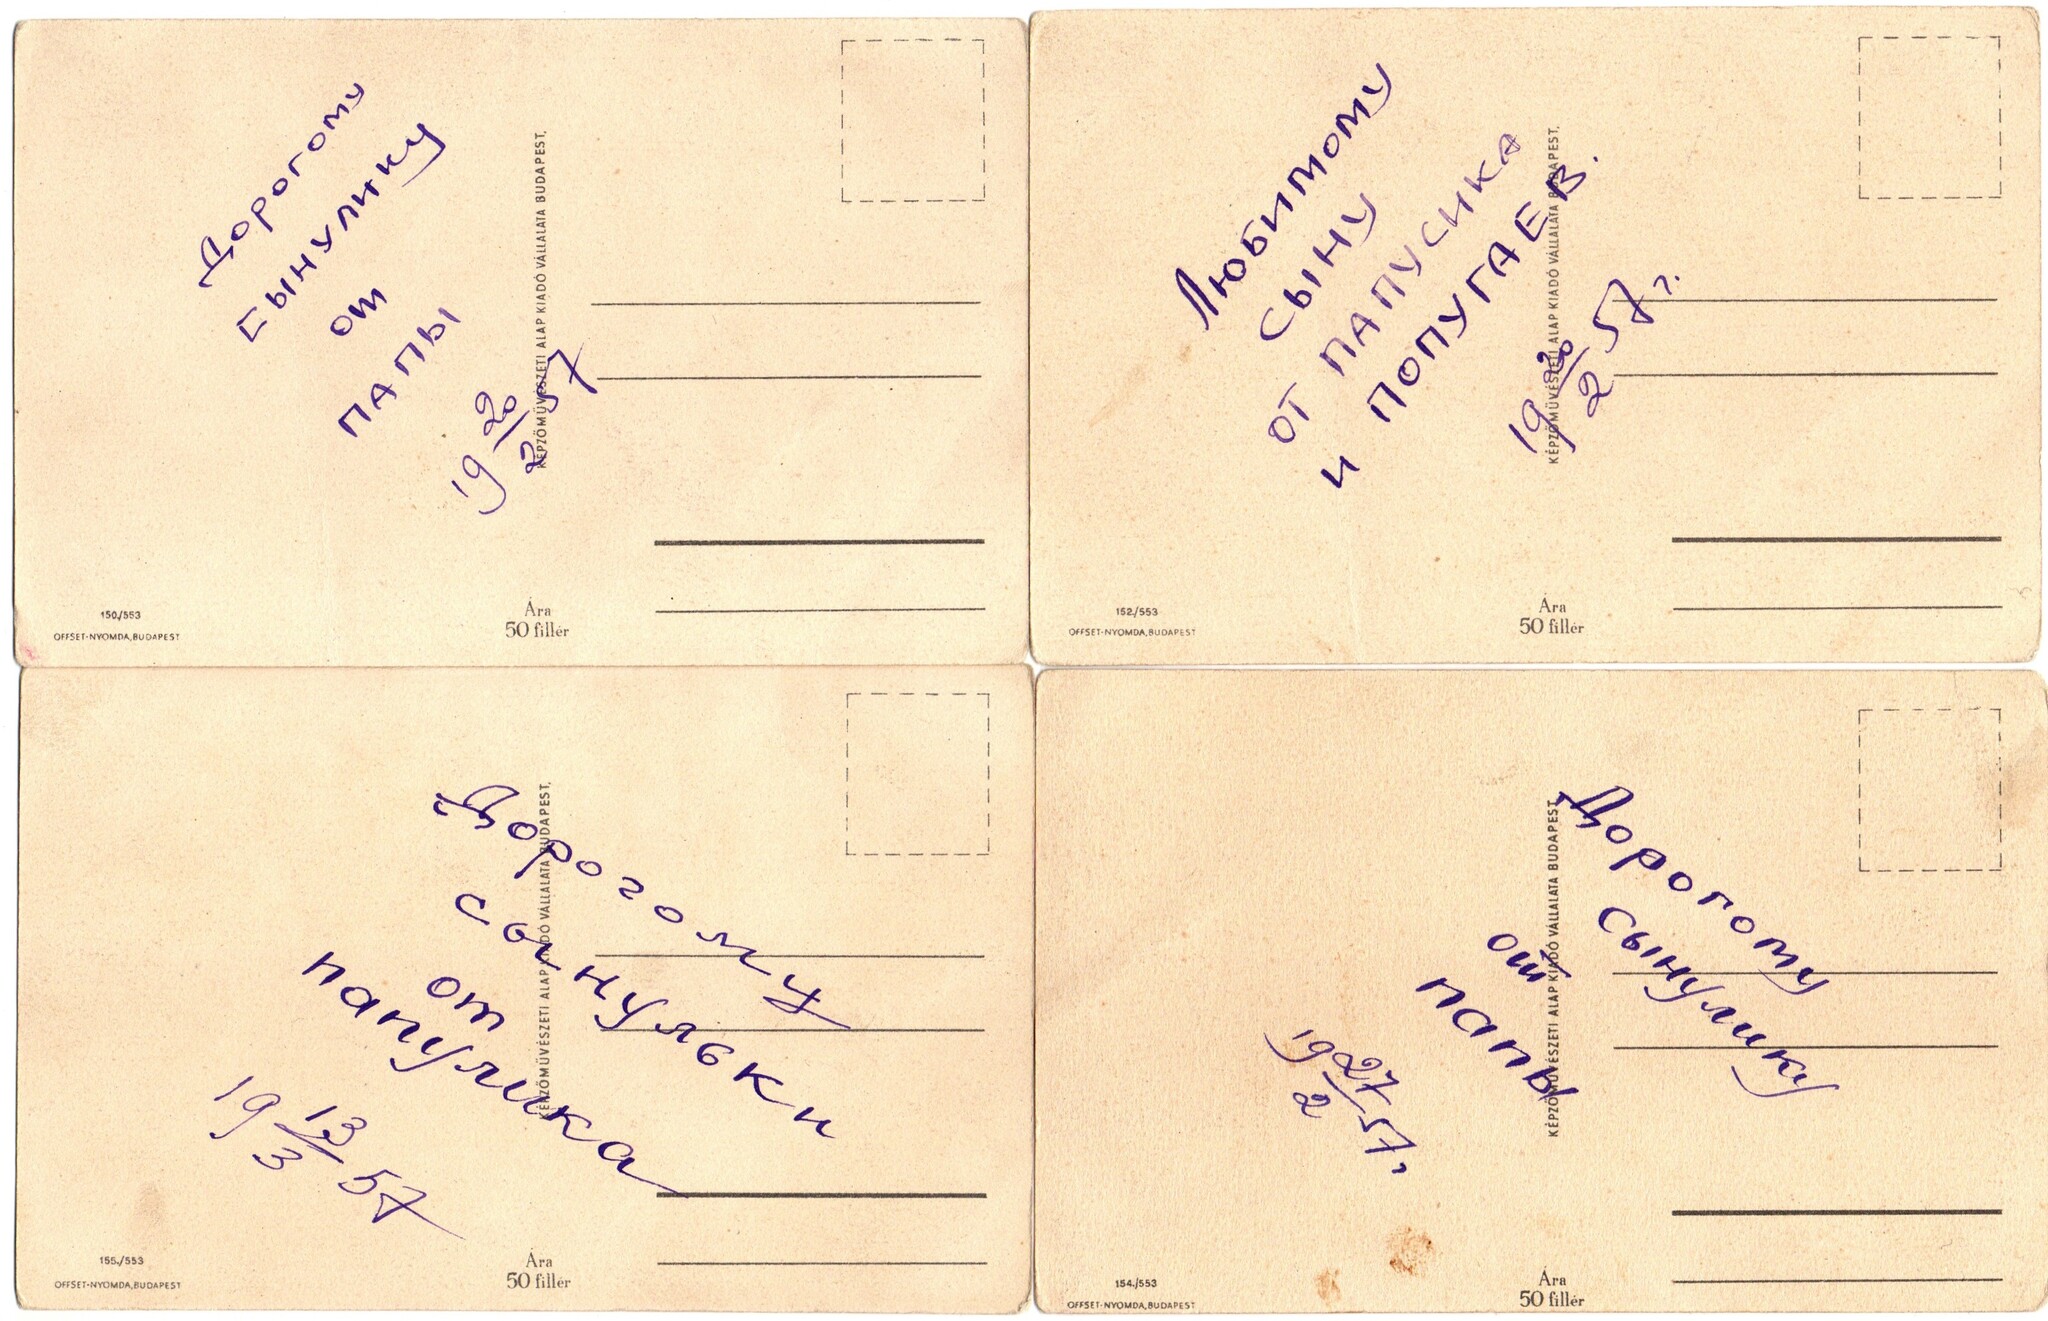 Дорогому
сынулику
от
папы
19 20/2 57
KÉPZŐMŰVÉSZETI ALAP KIADÓ VÁLLALATA BUDAPEST.
150./553
OFFSET-NYOMDA, BUDAPEST
Ára
50 fillér
Любимому
сыну
от папусика
и попугаев.
19 20/2 57 г.
KÉPZŐMŰVÉSZETI ALAP KIADÓ VÁLLALATA BUDAPEST.
152./553
OFFSET-NYOMDA, BUDAPEST
Ára
50 fillér
Дорогому
сынульки
от
папулика
19 13/3 57
KÉPZŐMŰVÉSZETI ALAP KIADÓ VÁLLALATA BUDAPEST.
155./553
OFFSET-NYOMDA, BUDAPEST
Ára
50 fillér
Дорогому
сынулику
от
папы
19 27/2 57 г
KÉPZŐMŰVÉSZETI ALAP KIADÓ VÁLLALATA BUDAPEST.
154./553
OFFSET-NYOMDA, BUDAPEST
Ára
50 fillér